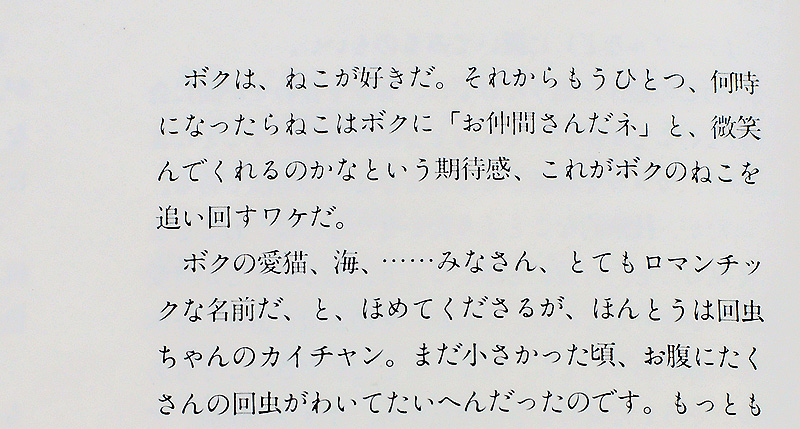 ボクは、ねこが好きだ。それからもうひとつ、何時
になったらねこはボクに「お仲間さんだネ」と、微笑
んでくれるのかなという期待感、これがボクのねこを
追い回すワケだ。
ボクの愛猫、海、……みなさん、とてもロマンチッ
クな名前だ、と、ほめてくださるが、ほんとうは回虫
ちゃんのカイチャン。まだ小さかった頃、お腹にたく
さんの回虫がわいてたいへんだったのです。もっとも